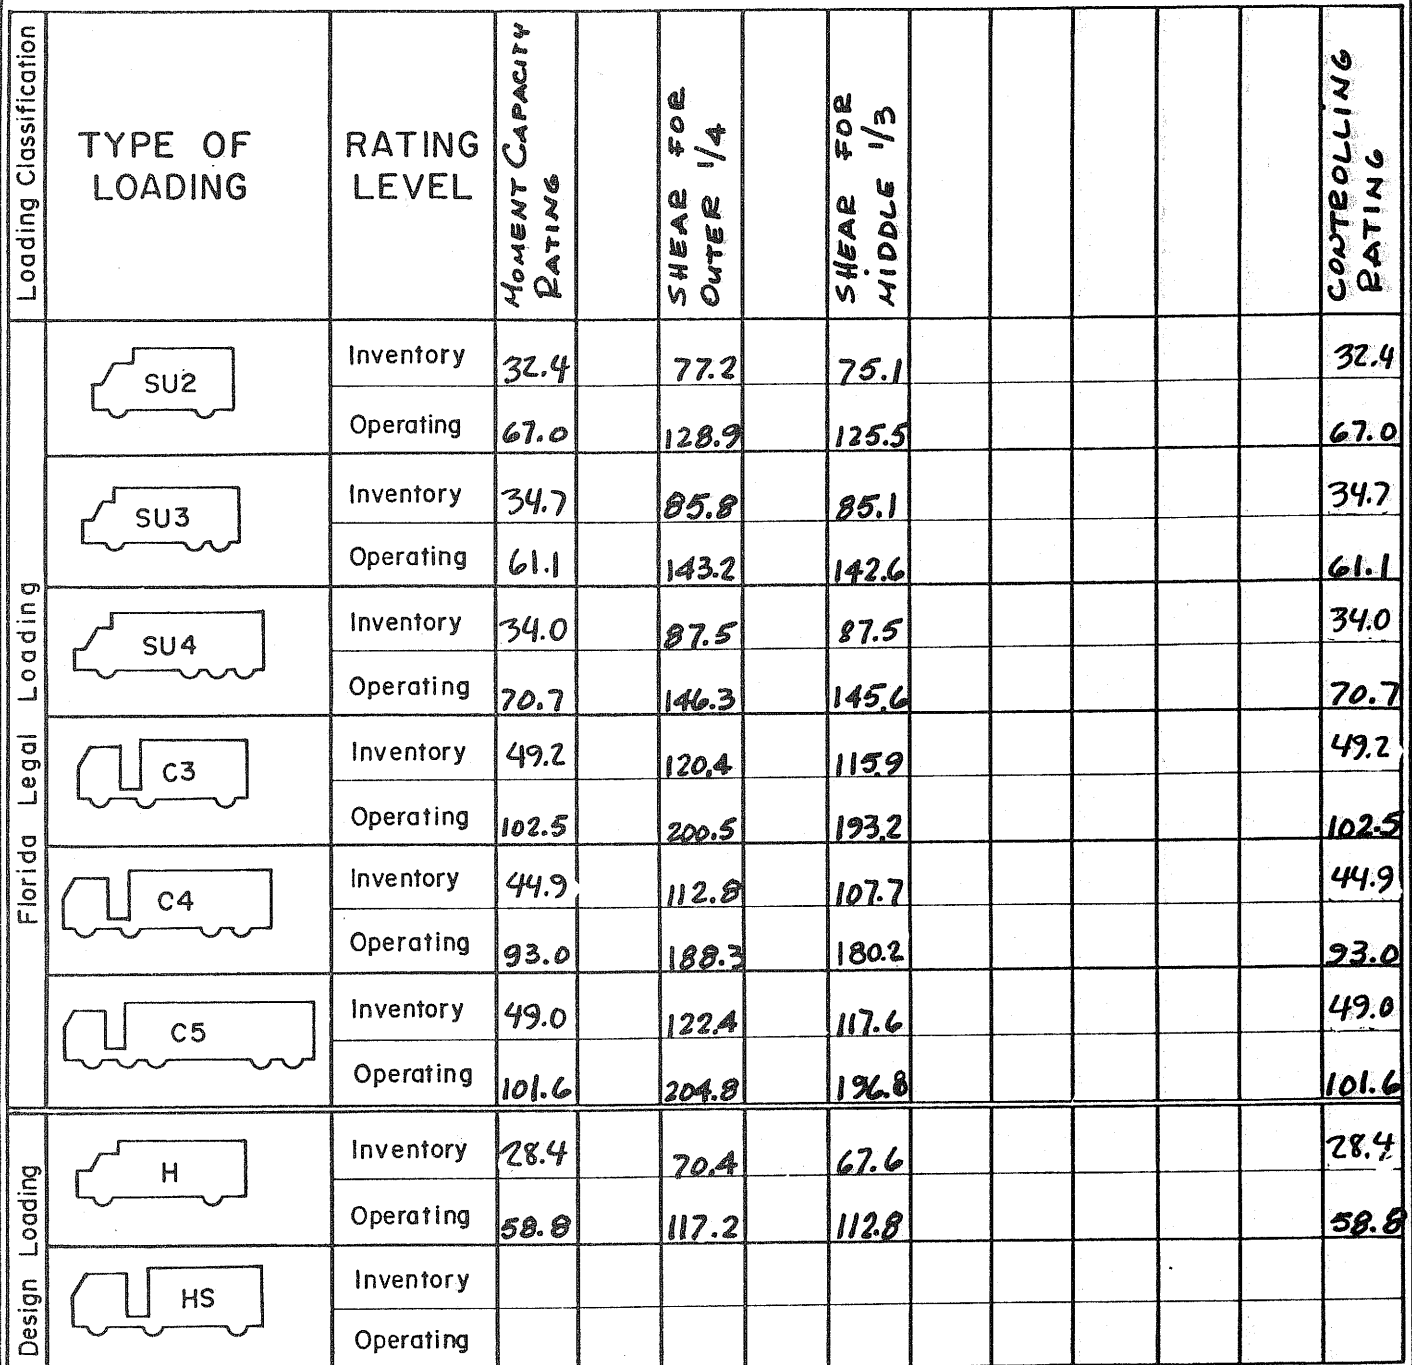 Loading Classification
TYPE OF
LOADING
RATING
LEVEL
MOMENT CAPACITY
RATING
SHEAR FOR
OUTER 1/4
SHEAR FOR
MIDDLE 1/3
CONTROLLING
RATING
Florida Legal Loading
SU2
Inventory 32.4 77.2 75.1 32.4
Operating 67.0 128.9 125.5 67.0
SU3
Inventory 34.7 85.8 85.1 34.7
Operating 61.1 143.2 142.6 61.1
SU4
Inventory 34.0 87.5 87.5 34.0
Operating 70.7 146.3 145.6 70.7
C3
Inventory 49.2 120.4 115.9 49.2
Operating 102.5 200.5 193.2 102.5
C4
Inventory 44.9 112.8 107.7 44.9
Operating 93.0 188.3 180.2 93.0
C5
Inventory 49.0 122.4 117.6 49.0
Operating 101.6 204.8 196.8 101.6
Design Loading
H
Inventory 28.4 70.4 67.6 28.4
Operating 58.8 117.2 112.8 58.8
HS
Inventory
Operating